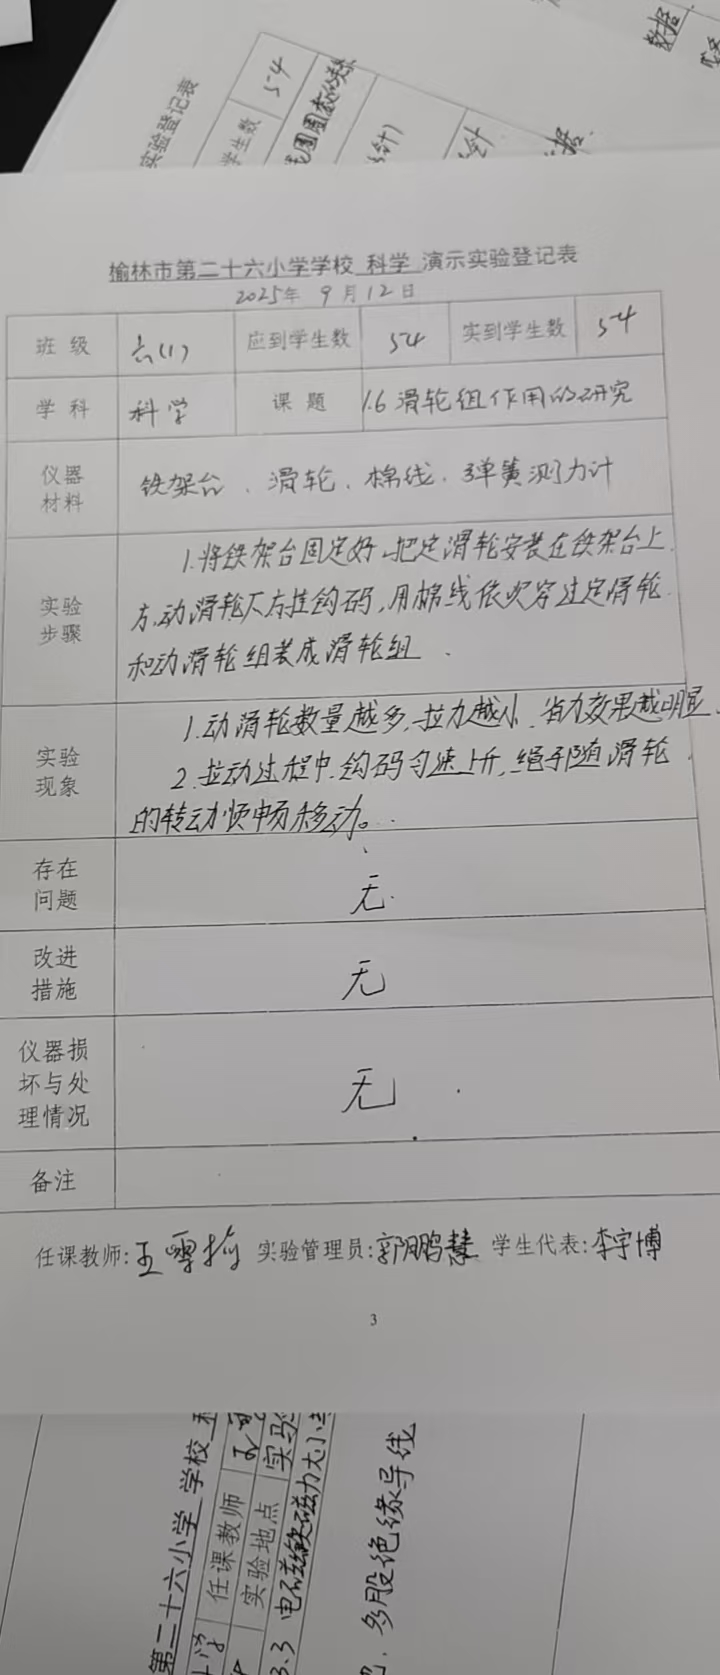 实验登记表
学生数
54
榆林市第二十六小学学校 科学 演示实验登记表
2025年 9月12日
班级 六(1) 应到学生数 54 实到学生数 54
学科 科学 课题 1.6 滑轮组作用的研究
仪器材料 铁架台、滑轮、棉线、弹簧测力计
实验步骤
1.将铁架台固定好,把定滑轮安装在铁架台上
方,动滑轮下方挂钩码,用棉线依次穿过定滑轮
和动滑轮组装成滑轮组.
实验现象
1.动滑轮数量越多,拉力越小,省力效果越明显.
2.拉动过程中,钩码匀速上升,绳子随滑轮
的转动顺畅移动。
存在问题 无.
改进措施 无
仪器损坏与处理情况 无
备注
任课教师:王 实验管理员:郭鹏慧 学生代表:李宇博
3
第二十六小学 学校
任课教师
实验地点
3.3 电磁铁磁力大小
多股绝缘导线